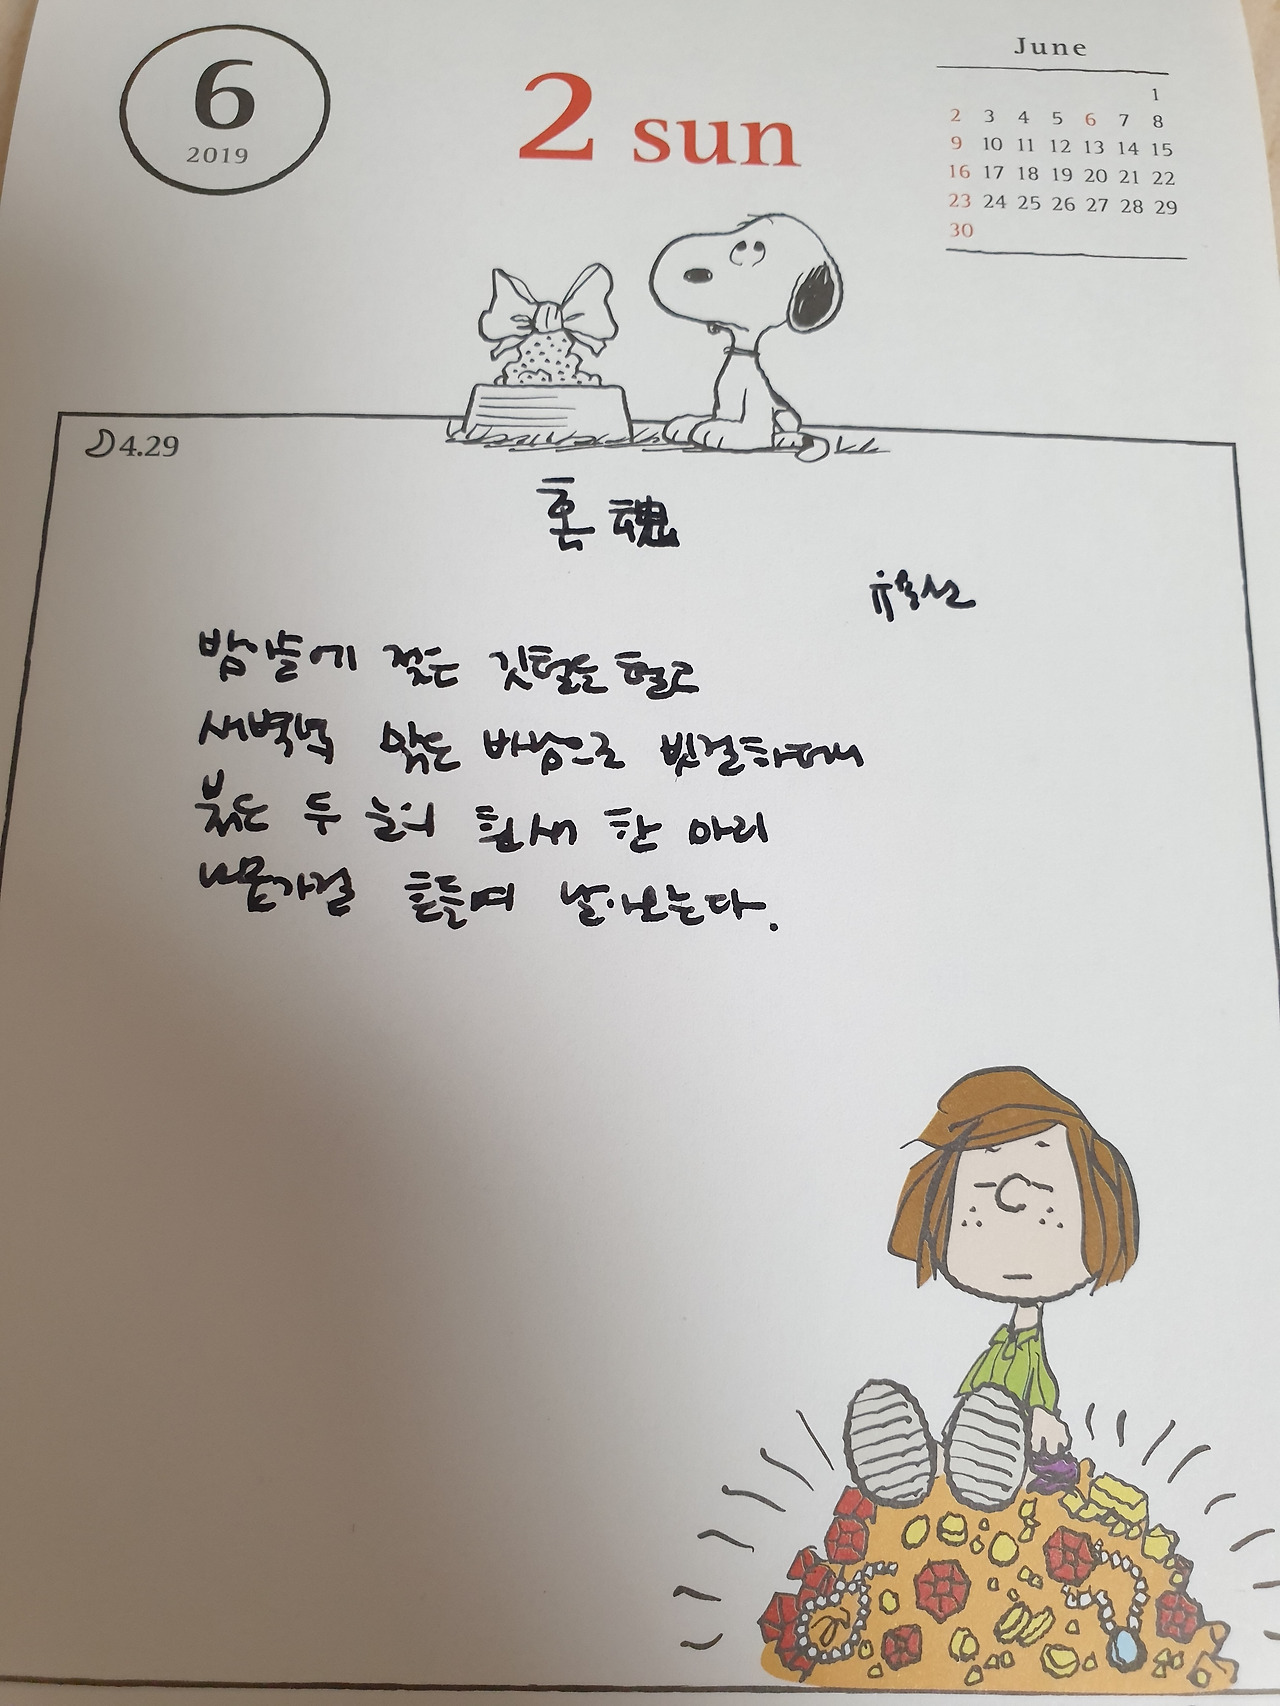 6
2019
2 sun
June
1
2 3 4 5 6 7 8
9 10 11 12 13 14 15
16 17 18 19 20 21 22
23 24 25 26 27 28 29
30
4.29
혼 魂
밤이슬에 젖은 깃털을 털고
새벽녘 맑은 바람으로 빗질하며
붉은 두 눈의 흰새 한 마리
나뭇가질 흔들며 날아오른다.